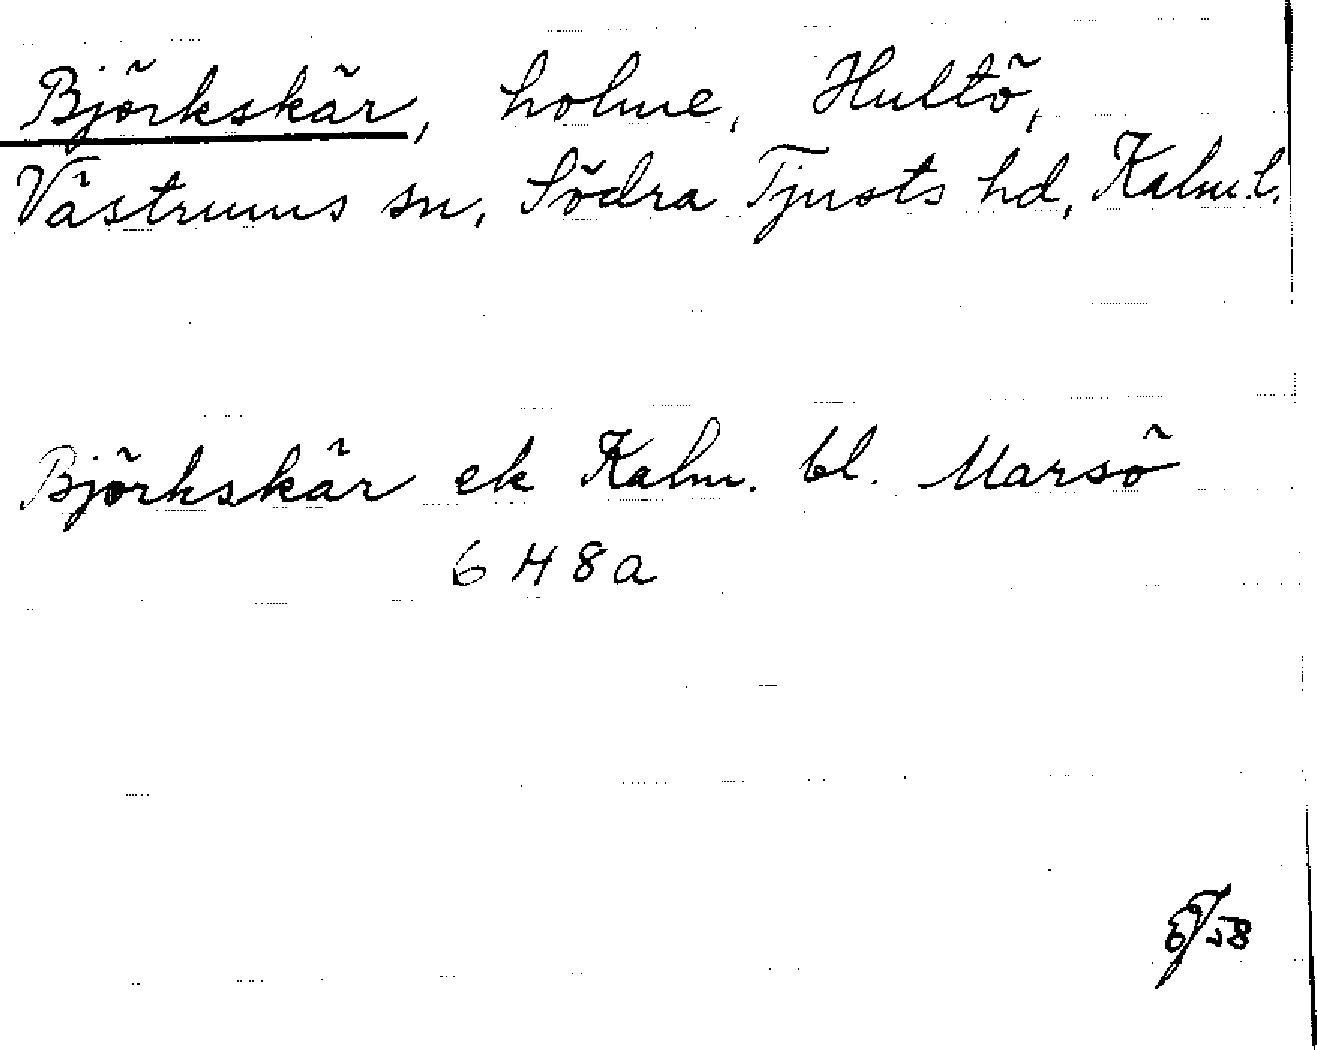 Björkskär, holme, Hultö,
Västrums sn, Södra Tjusts hd, Kalm. l.
Björkskär ek Kalm. bl. Marsö
6 H 8 a